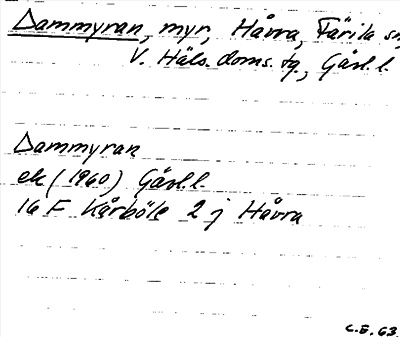 Dammyran, myr, Håvra, Färila sn,
V. Häls. doms. tg., Gävl. l.
Dammyran
ek (1960) Gävl. l.
16 F Kårböle 2 j Håvra
C.E. 63.